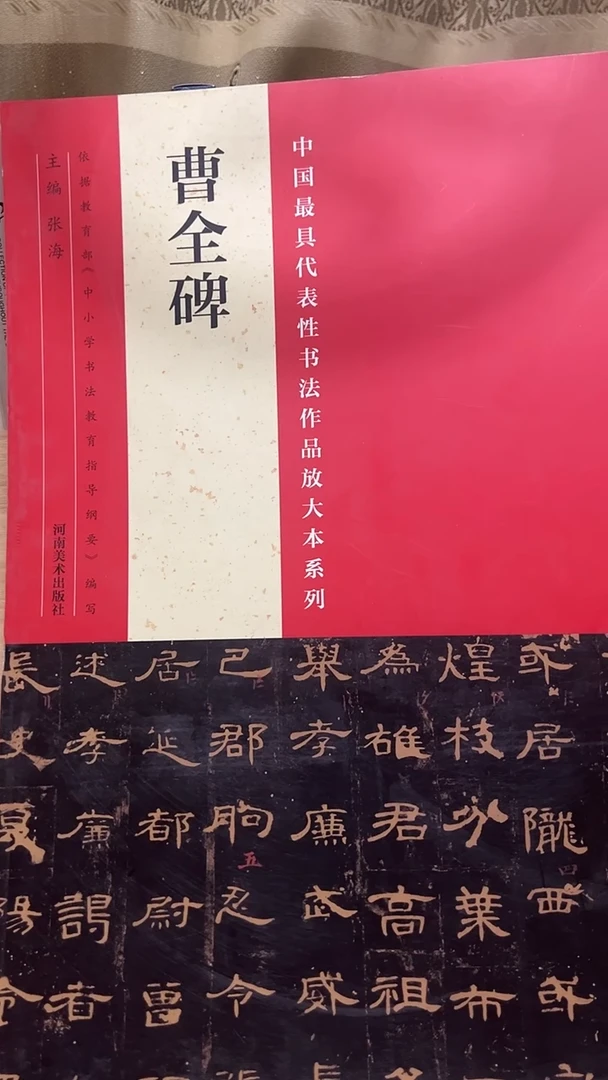 中国最具代表性书法作品放大本系列
曹全碑
依据教育部《中小学书法教育指导纲要》编写
主编 张海
河南美术出版社
或居陇西或
煌枝分葉布
為雄君高祖
舉孝廉武威長
巳郡朐忍令
居延都尉曹
述孝廉謁者
長史夏陽令
五
四